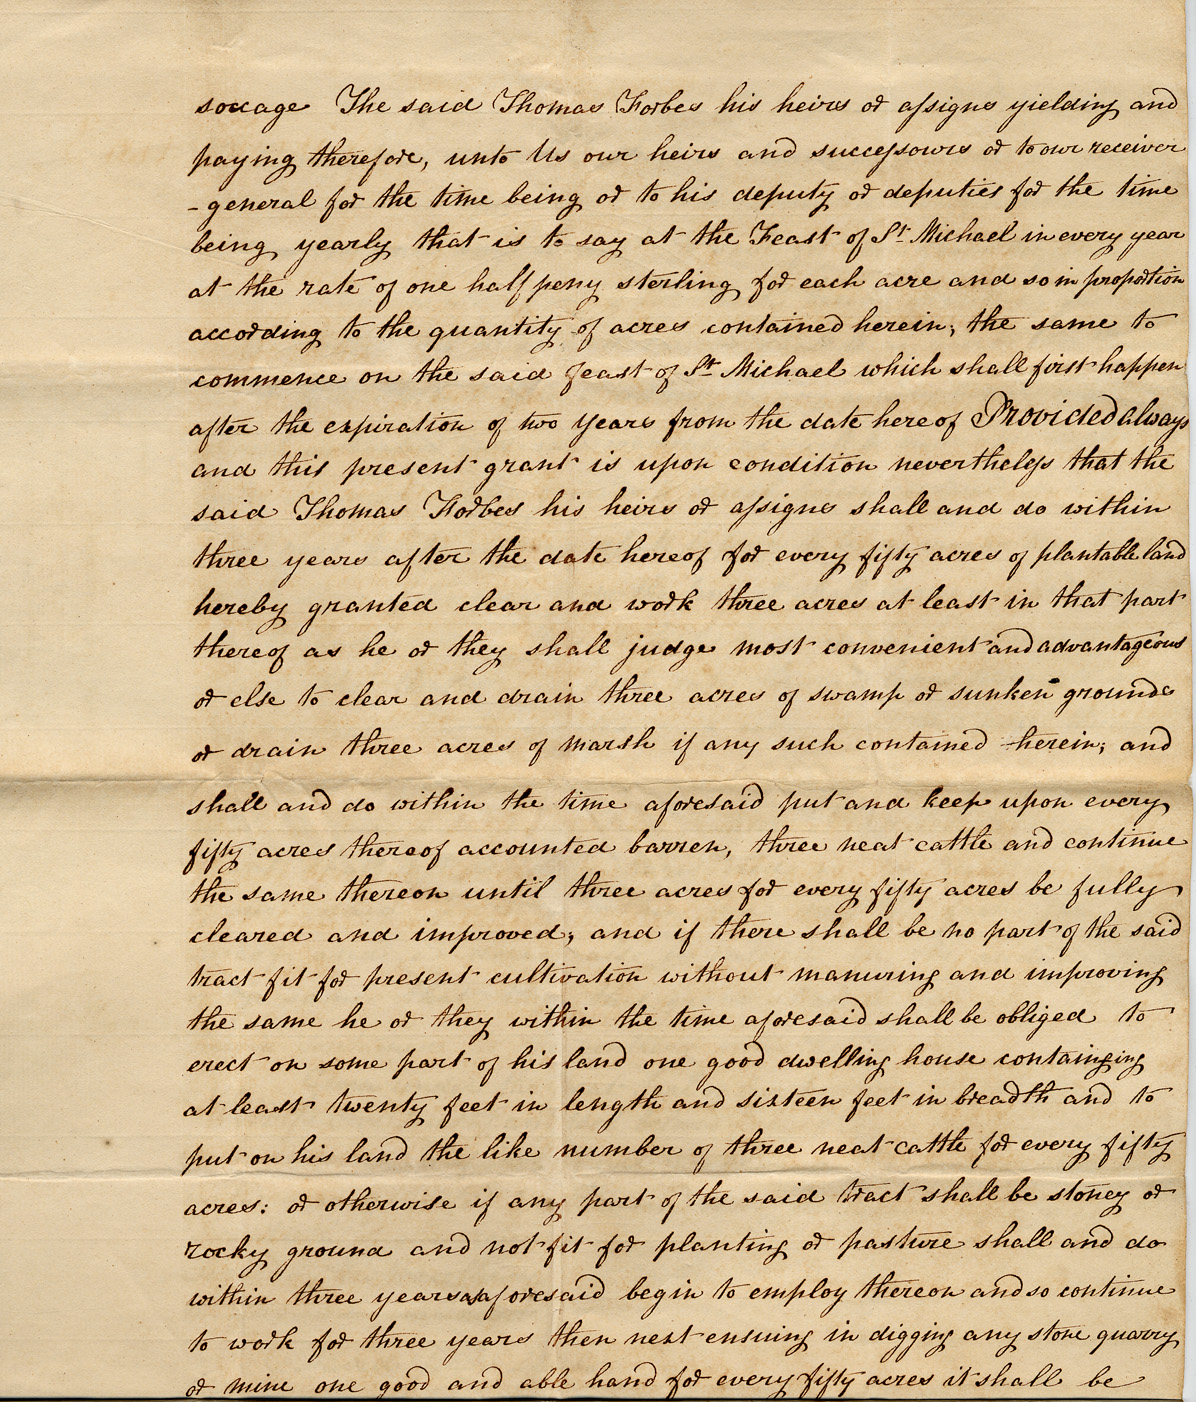 soccage The said Thomas Forbes his heirs or assigns yielding and
paying therefore, unto Us our heirs and successours or to our receiver
-general for the time being or to his deputy or deputies for the time
being yearly that is to say at the Feast of St. Michael in every year
at the rate of one half peny sterling for each acre and so in proportion
according to the quantity of acres contained herein; the same to
commence on the said feast of St. Michael which shall first happen
after the expiration of two years from the date hereof Provided always
and this present grant is upon condition nevertheless that the
said Thomas Forbes his heirs or assigns shall and do within
three years after the date hereof for every fifty acres of plantable land
hereby granted clear and work three acres at least in that part
thereof as he or they shall judge most convenient and advantageous
or else to clear and drain three acres of swamp or sunken grounds
or drain three acres of marsh if any such contained herein; and
shall and do within the time aforesaid put and keep upon every
fifty acres thereof accounted barren, three neat cattle and continue
the same thereon until three acres for every fifty acres be fully
cleared and improved; and if there shall be no part of the said
tract fit for present cultivation without manuring and improving
the same he or they within the time aforesaid shall be obliged to
erect on some part of his land one good dwelling house containging
at least twenty feet in length and sixteen feet in breadth and to
put on his land the like number of three neat cattle for every fifty
acres: or otherwise if any part of the said tract shall be stoney or
rocky ground and not fit for planting or pasture shall and do
within three years as aforesaid begin to employ thereon and so continue
to work for three years then next ensuing in digging any stone quarry
or mine one good and able hand for every fifty acres it shall be